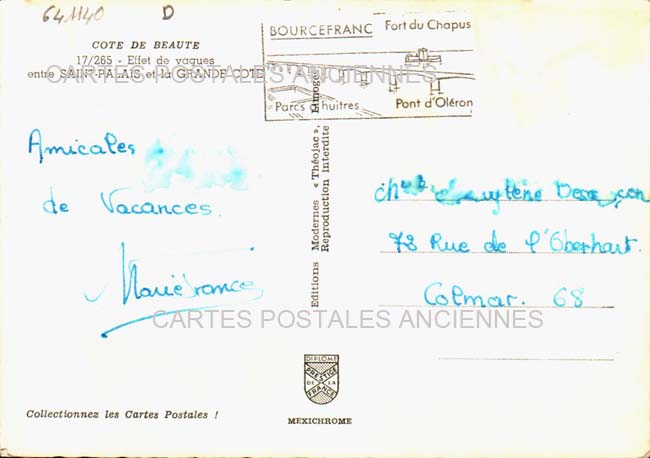 641140 D
COTE DE BEAUTE
17/265 - Effet de vagues
entre SAINT-PALAIS et la GRANDE COTE
BOURCEFRANC Fort du Chapus
Parcs à huitres Pont d'Oléron
CARTES POSTALES ANCIENNES
Amicales
de Vacances.
MarieFrance
Editions Modernes « Théojac », Limoges
Reproduction interdite
78 Rue de l'Oberhart.
Colmar. 68
CARTES POSTALES ANCIENNES
DIPLOME
PRESTIGE
DE LA
FRANCE
MEXICHROME
Collectionnez les Cartes Postales !